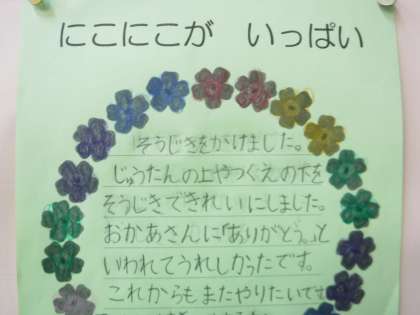 にこにこが いっぱい
そうじきをかけました。
じゅうたんの上やつくえの下を
そうじきできれいにしました。
おかあさんに「ありがとう。」と
いわれてうれしかったです。
これからもまたやりたいです